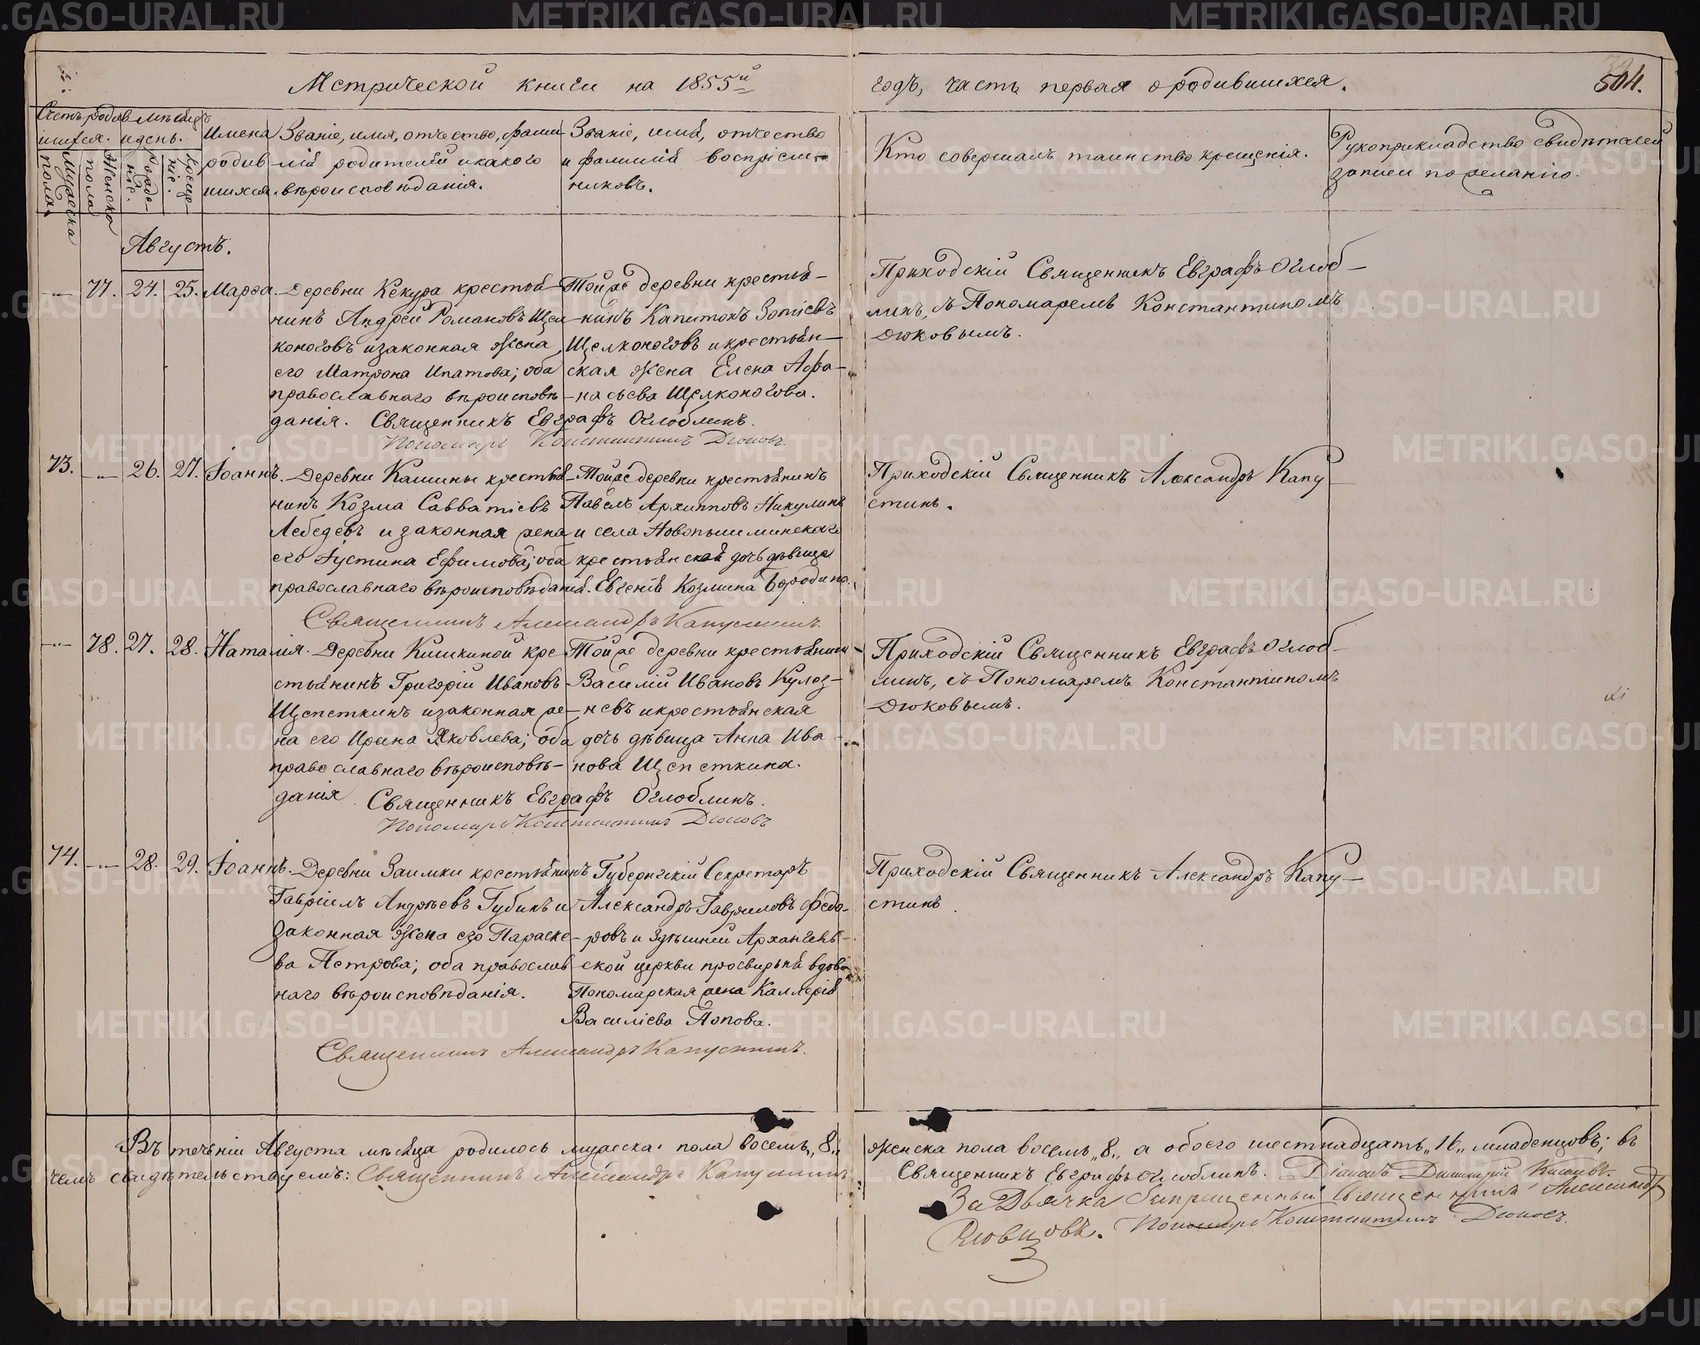 Метрической книги на 1855й
годъ, часть первая о родившихся.
504.
Счетъ родив
шихся.
Мужеска пола.
Женска пола
Мѣсяцъ
и день.
Рожде-
нiе.
Креще-
нiе.
Имена
родив
шихся.
Званiе, имя, отчество, фами
лiя родителей и какого
вѣроисповѣданiя.
Званiе, имя, отчество
и фамилiя воспрiем-
никовъ.
Кто совершалъ таинство крещенiя.
Рукоприкладство свидѣтелей
записи по желанiю.
Августъ.
77. 24. 25. Марѳа.
Деревни Кекура крестья
нинъ Андрей Романовъ Щел
коноговъ и законная жена
его Матрона Ипатова; оба
православнаго вѣроисповѣ-
данiя. Священникъ Евграфъ Оглоблинъ.
Пономарь Константинъ Дюковъ.
Той же деревни крестья-
нинъ Капитонъ Зотiевъ
Щелконоговъ и крестьян-
ская жена Елена Афа-
насьева Щелконогова.
Приходскiй Священникъ Евграфъ Оглоб-
линъ, съ Пономаремъ Константиномъ
Дюковымъ.
73. 26. 27. Iоаннъ.
Деревни Кашины крестья
нинъ Козма Савватiевъ
Лебедевъ и законная жена
его Iустина Ефимова; оба
православнаго вѣроисповѣданiя.
Священникъ Александръ Капустинъ.
Той же деревни крестьянинъ
Павелъ Архипповъ Никулинъ
и села Новопышминскаго
крестьянская дочь дѣвица
Евгенiя Козмина Бородина.
Приходскiй Священникъ Александръ Капу
стинъ.
78. 27. 28. Наталiя.
Деревни Кишкиной кре
стьянинъ Григорiй Ивановъ
Щепеткинъ и законная же-
на его Ирина Яковлева; оба
православнаго вѣроисповѣ-
данiя. Священникъ Евграфъ Оглоблинъ.
Пономарь Константинъ Дюковъ
Той же деревни крестьянинъ
Василiй Ивановъ Кулез-
невъ и крестьянская
дочь дѣвица Анна Ива-
нова Щепеткина.
Приходскiй Священникъ Евграфъ Оглоб-
линъ, съ Пономаремъ Константиномъ
Дюковымъ.
74. 28. 29. Iоаннъ.
Деревни Заимки крестьянинъ
Гаврiилъ Андреевъ Губинъ и
законная жена его Параске-
ва Петрова; оба православ
наго вѣроисповѣданiя.
Губернскiй Секретарь
Александръ Гавриловъ Федо-
ровъ и здѣшней Архангель-
ской церкви просвирня вдова
Пономарская жена Каллерiя
Василiева Попова.
Священникъ Александръ Капустинъ.
Приходскiй Священникъ Александръ Капу-
стинъ
Въ теченiи Августа мѣсяца родилось мужеска пола восемь „8„
женска пола восемь „8„ а обоего шестнадцать „16„ младенцовъ; въ
чемъ свидѣтельствуемъ: Священникъ Александръ Капустинъ
Священникъ Евграфъ Оглоблинъ. Дiаконъ Димитрiй
За Дьячка Запрещенный Священникъ Александръ
Пономарь Константинъ Дюковъ.
METRIKI.GASO-URAL.RU